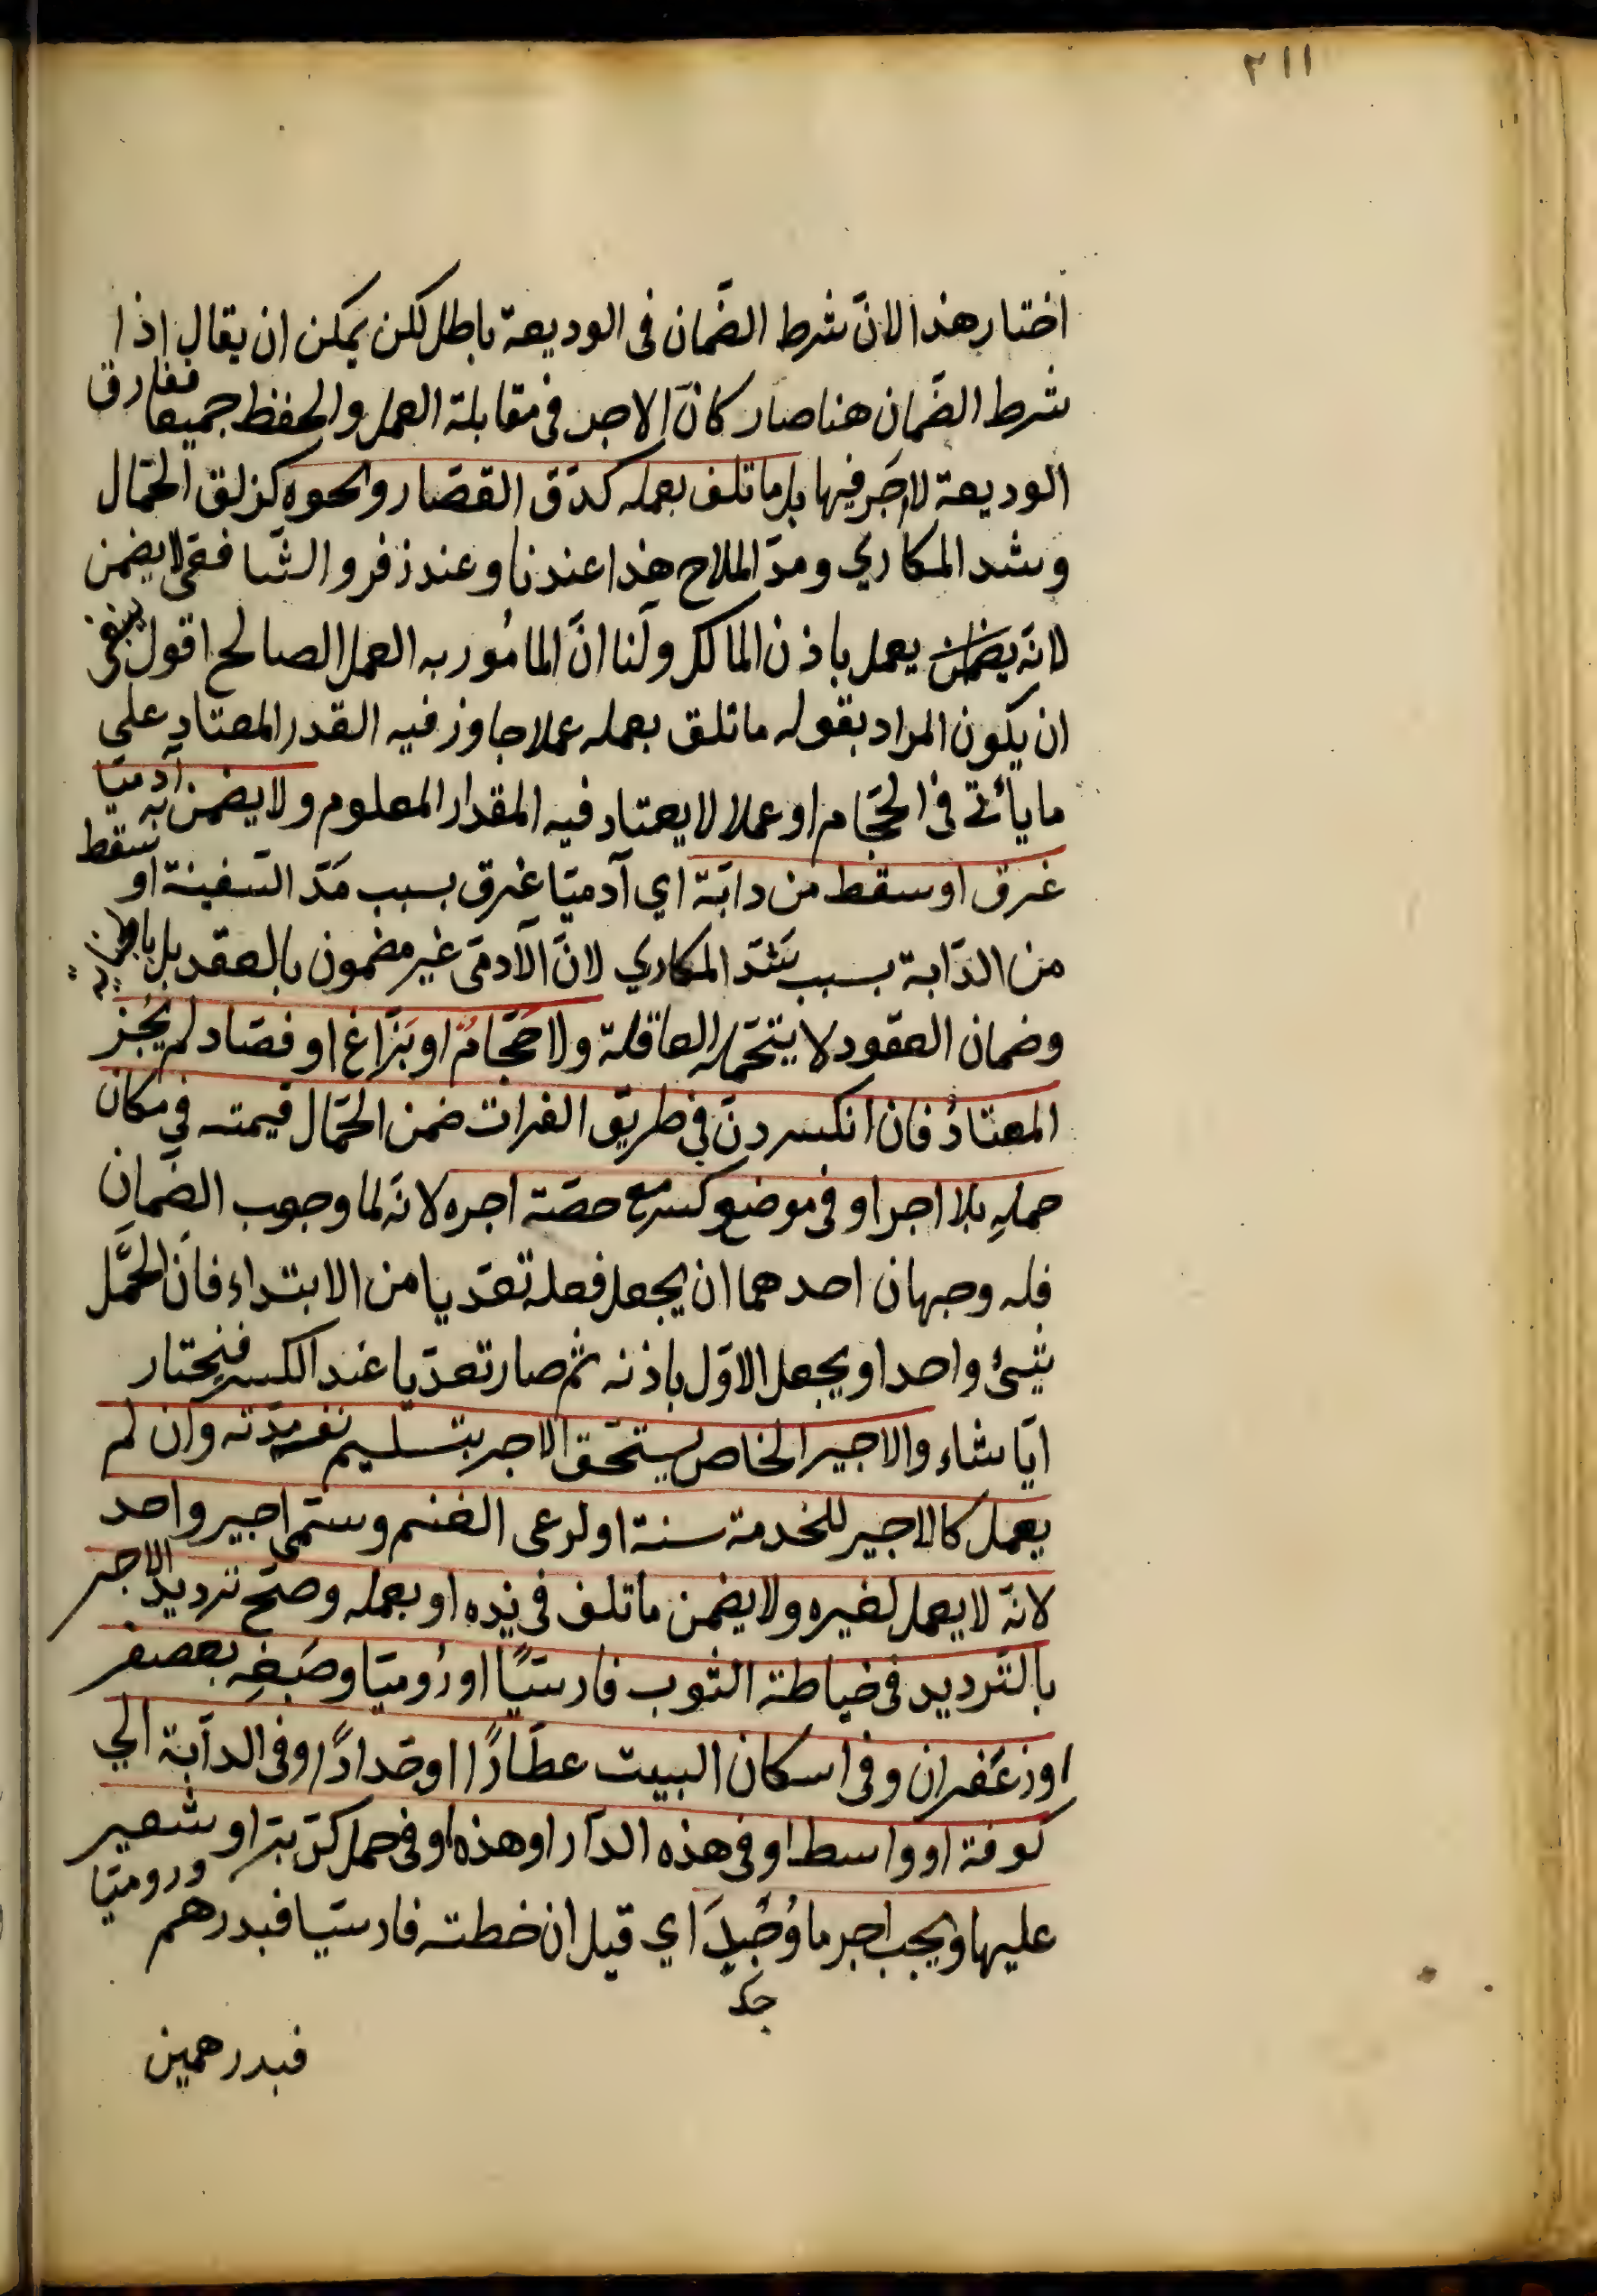 ٢١١
اختار هذا لانّ شرط الضّمان فى الوديعة باطل لكن يمكن ان يقال اذا
شرط الضّمان هنا صار كانّ الاجر فى مقابلة العمل والحفظ جميعا ففارق
الوديعة لا اجر فيها بل ما تلف بعمله كدقّ القصّار ونحوه كزلق الحمّال
وشد المكاري ومدّ الملاح هذا عندنا وعند زفر والشّافعى لا يضمن
لانّه يعمل باذن المالك ولنا انّ المأمور به العمل الصالح اقول ينبغى
ان يكون المراد بقوله ما تلف بعمله عملا جاوز فيه القدر المعتاد على
ما يأتى فى الحجّام او عملا لا يعتاد فيه المقدار المعلوم ولا يضمن به آدميّا
غرق او سقط من دابّة اي آدميّا غرق بسبب مَدّ السّفينة او سقط
من الدّابة بسبب شَدّ المكاري لانّ الآدمى غير مضمون بالعقد بل
وضمان العقود لا يتحمّله العاقلة ولا حَجّامٌ او بَزّاغ او فصّاد لم يَجُز
المعتادُ فان انكسر دنّ فى طريق الفرات ضمن الحمّال قيمته فى مكان
حملهِ بلا اجر او فى موضع كسره مع حصّة اجره لانّه لما وجوب الضّمان
فله وجهان احدهما ان يجعل فعله تعدّيا من الابتداء فانّ الحمل
شيئ واحد او يجعل الاوّل باذنه ثمّ صار تعدّيا عند الكسر فيختار
ايّا شاء والاجير الخاص يستحقّ الاجر بتسليم نفسه مدّته وان لم
يعمل كالاجير للخدمة سنة او لرعى الغنم وسمّى اجير واحد
لانّه لا يعمل لغيره ولا يضمن ما تلف فى يده او بعمله وصحّ ترديد الاجر
بالتّرديد فى خياطة الثوب فارسيًّا او رُوميّا وصَبغِه بعصفر
او زعَفران وفى اسكان البيت عطّارًا او حَدادًا وفى الدابّة الى
كوفة او واسط او فى هذه الدّار او هذه او فى حمل كرّ برّ او شعير
عليها ويجب اجر ما وُجِدَ اي قيل ان خطته فارسيّا فبدرهم وروميّا
فبدرهمين